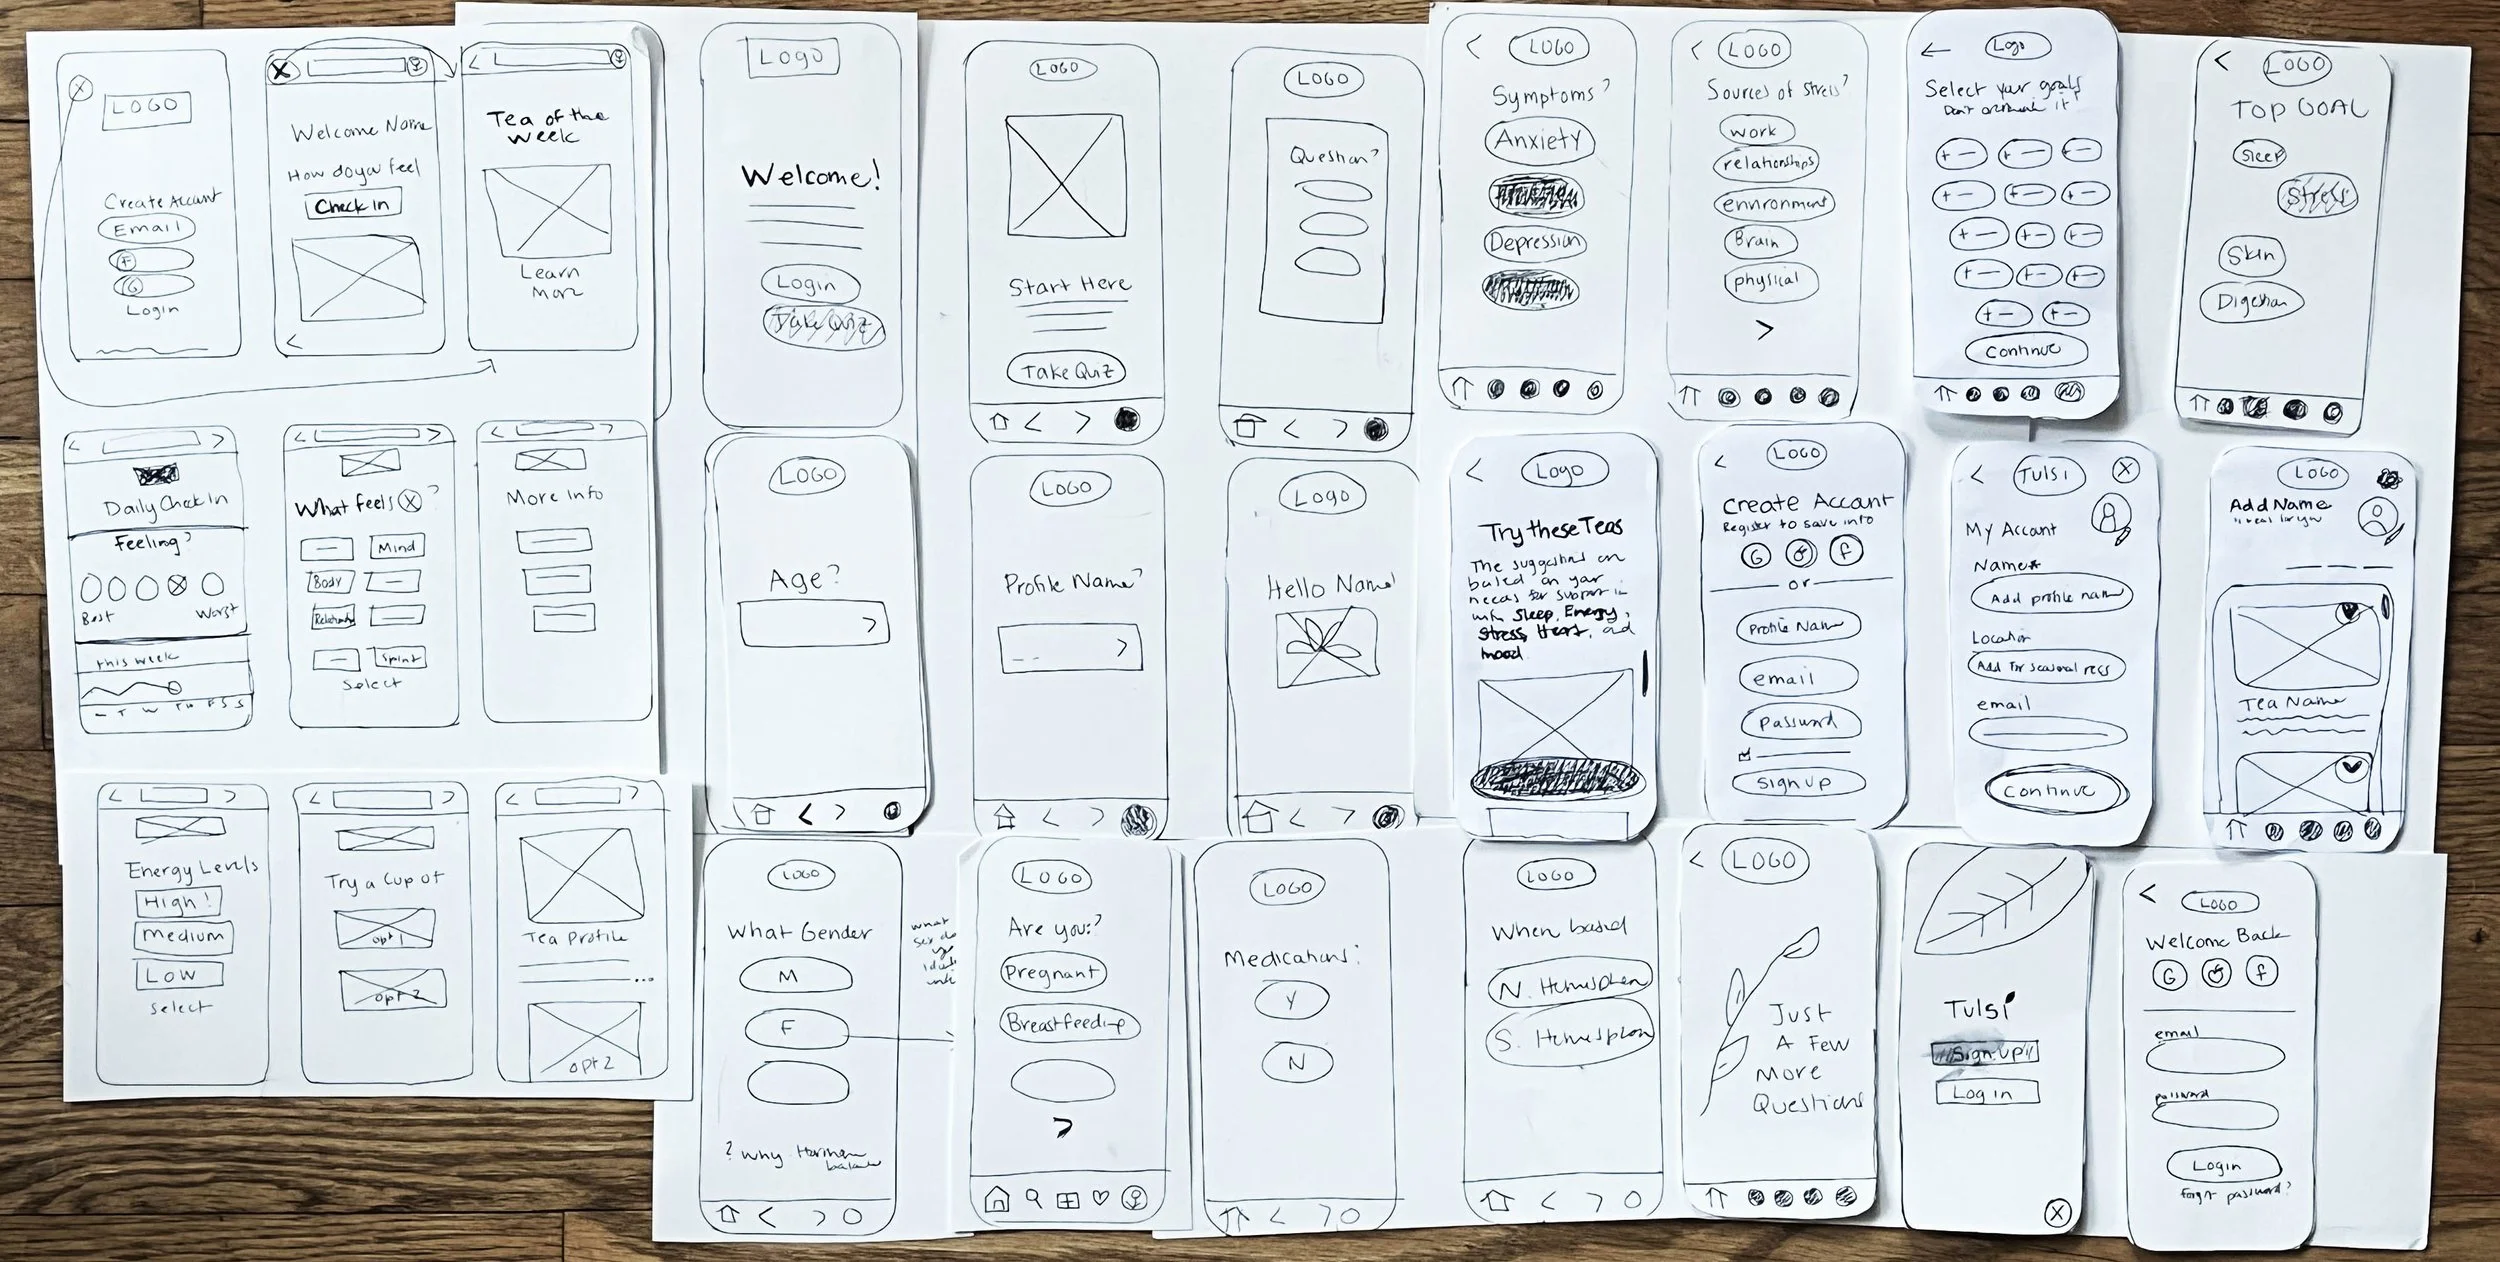 LOGO
Create Account
Email
F
G
Login
X
Welcome Name
How do you feel
Check In
Tea of the
week
Learn
More
Logo
Welcome!
Login
Take Quiz
LOGO
Start Here
Take Quiz
LOGO
Question?
LOGO
Symptoms?
Anxiety
Depression
LOGO
Sources of Stress?
work
relationships
environment
Brain
physical
Logo
Select your goals
Continue
LOGO
TOP GOAL
Sleep
Stress
Skin
Digestion
Daily Check In
Feeling?
Best
Worst
this week
T W TH F S S
What feels X?
Mind
Body
Spirit
Select
More Info
LOGO
Age?
LOGO
Profile Name?
Logo
Hello Name!
Logo
Try these Teas
The suggestions are
based on your
needs for support in
with Sleep, Energy,
Stress, Heart, and
mood.
LOGO
Create Account
Register to save info
G f
or
Profile Name
email
password
Sign up
TULSI
X
My Account
Name*
Add profile name
Location
Add for seasonal recs
email
Continue
LOGO
Add Name
Tea Name
Energy Levels
High!
Medium
Low
Select
Try a Cup of
opt 1
opt 2
Tea Profile
opt 2
LOGO
What Gender
M
F
? Why Hormone
balance
LOGO
Are you?
Pregnant
Breastfeeding
LOGO
Medications?
Y
N
LOGO
When based
N. Hemisphere
S. Hemisphere
LOGO
Just
A Few
More
Questions
Tulsi
Sign up
Log in
X
LOGO
Welcome Back
G f
email
password
Login
forgot password?